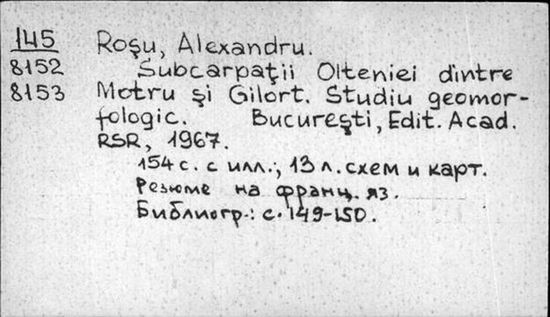 145 Roşu, Alexandru.
8152 Subcarpaţii Olteniei dintre
8153 Motru şi Gilort. Studiu geomor-
fologic. Bucureşti, Edit. Acad.
RSR, 1967.
154 с. с илл.; 13 л. схем и карт.
Резюме на франц. яз.
Библиогр.: с. 149-150.